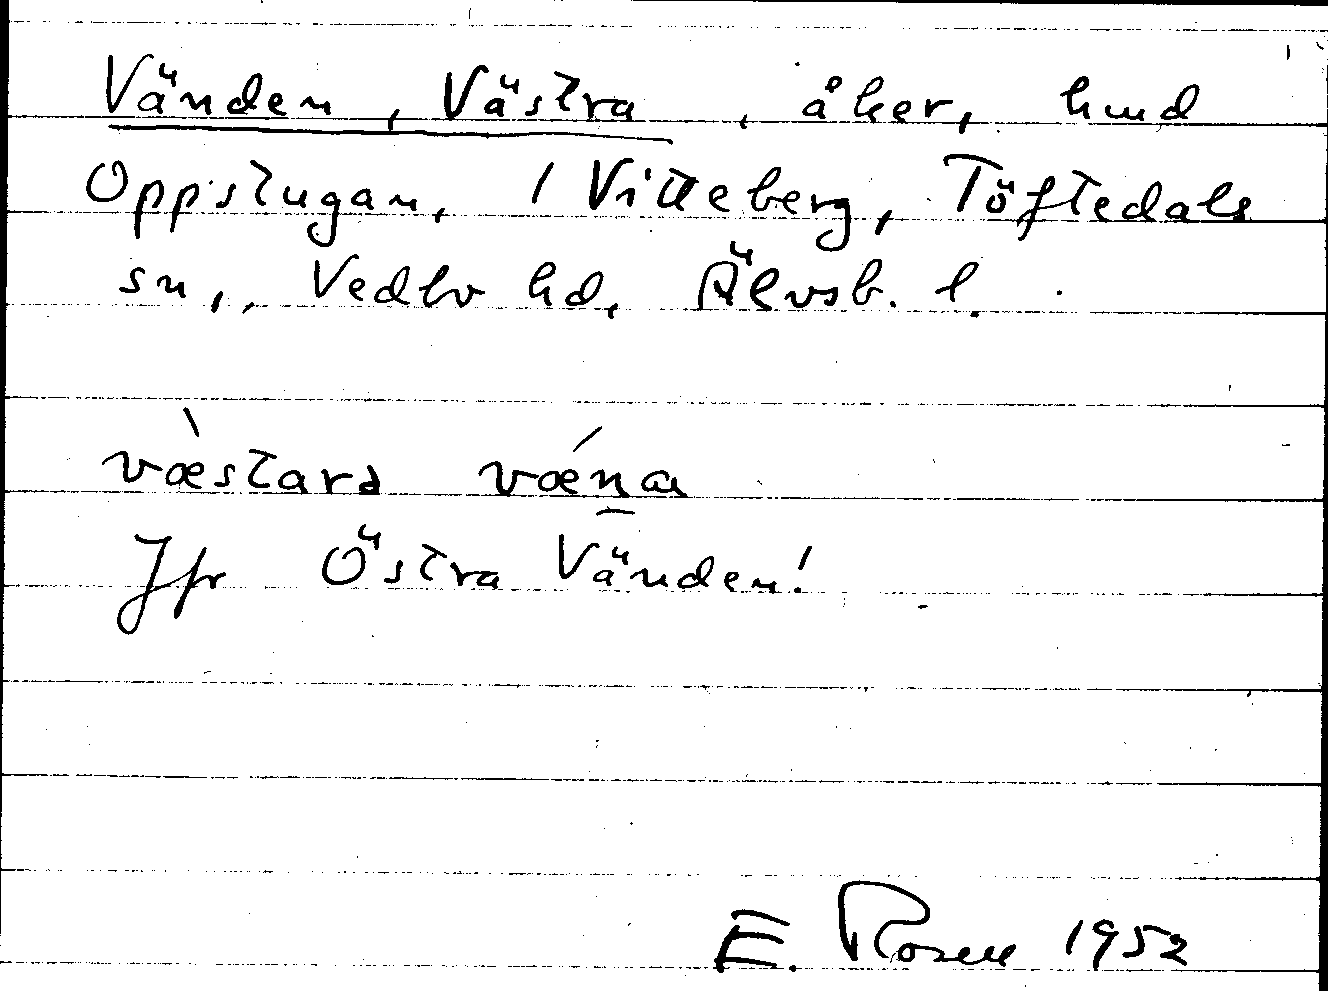 Vänden, Västra, åker, hmd
Oppstugan, 1 Vitteberg, Töftedals
sn, Vedbo hd, Älvsb. l.
væ̀starə vǽn̲a
Jfr Östra Vänden!
E. Rosell 1952